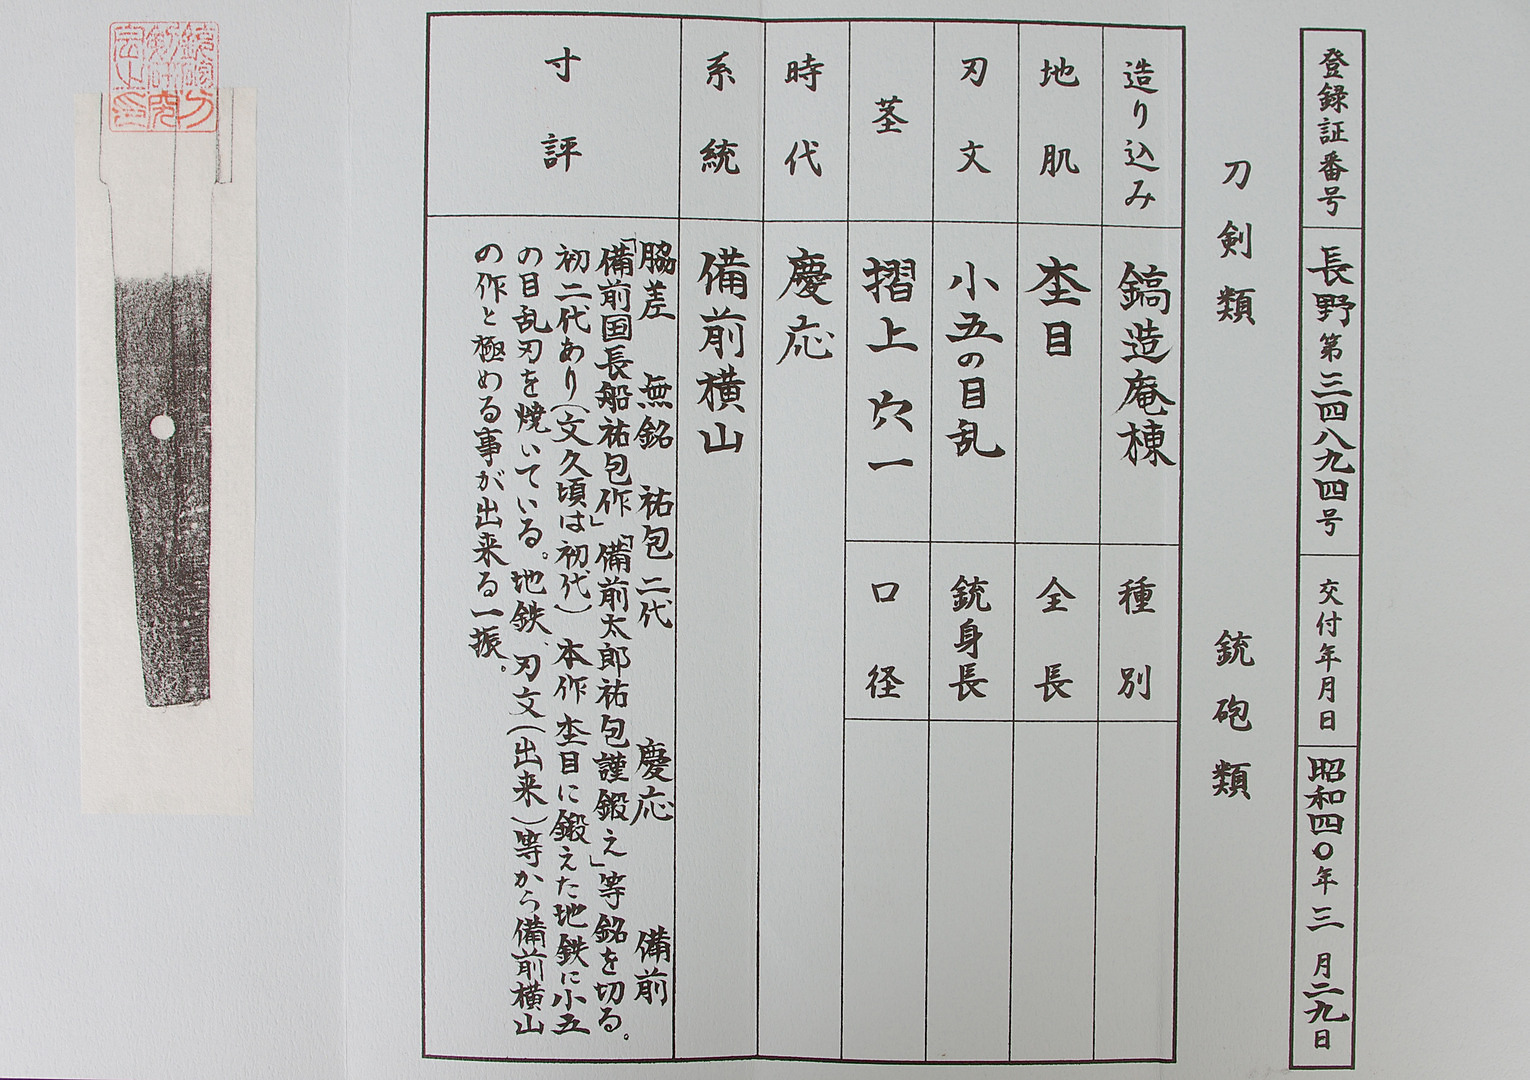 登録証番号 長野第三四八九四号 交付年月日 昭和四〇年三月二九日
刀剣類 銃砲類
造り込み 鎬造庵棟 種別
地肌 杢目 全長
刃文 小五の目乱 銃身長
茎 摺上 穴一 口径
時代 慶応
系統 備前横山
寸評
脇差 無銘 祐包二代 慶応 備前
「備前国長船祐包作」「備前太郎祐包謹鍛え」等銘を切る。
初二代あり(文久頃は初代) 本作杢目に鍛えた地鉄に小五
の目乱刃を焼いている。地鉄、刃文(出来)等から備前横山
の作と極める事が出来る一振。